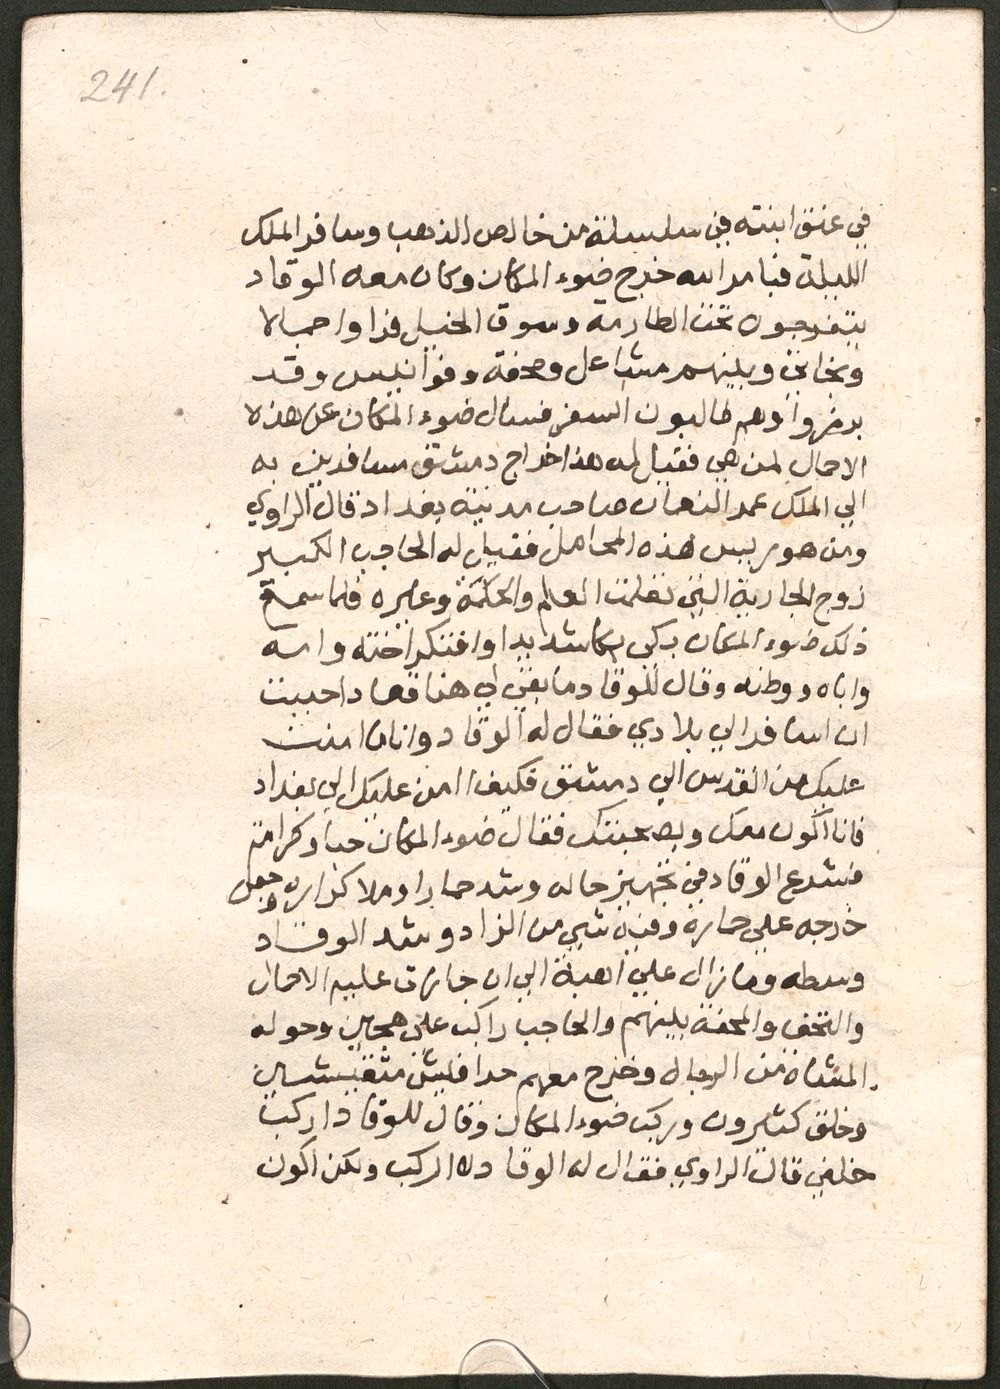 241.
في عنق ابنته في سلسلة من خالص الذهب وسافر الملك
الليلة فبامر الله خرج ضوء المكان وكان معه الوقاد
يتفرجون تحت الطارمة وسوق الخيل فراوا حمالا
وبخاتي وبينهم مشاعل ومحفة وفوانيس وقد
برزوا وهم طالبون السفر فسال ضوء المكان عن هذه
الاحمال لمن هي فقيل له هذا خراج دمشق مسافرين به
الي الملك عمر النعمان صاحب مدينة بغداد قال الراوي
ومن هو رييس هذه المحامل فقيل له الحاجب الكبير
زوج الجارية التي تعلمت العلم والحكمة وغيره فلما سمع
ذلك ضوء المكان بكي بكا شديدا وافتكر اخته وامه
واباه ووطنه وقال للوقاد ما بقي لي هنا قعاد احببت
ان اسافر الي بلادي فقال له الوقاد وانا ما امنت
عليك من القدس الي دمشق فكيف امن عليك الي بغداد
فانا اكون معك وبصحبتك فقال ضوء المكان حبا وكرامة
فشرع الوقاد في تجهيز حاله وشد حمارا وملا كراره وجعل
خرجه علي حماره وفيه شي من الزاد وشد الوقاد
وسطه وما زال علي اهبة الي ان جازت عليه الاحمال
والتحف والمحفة بينهم والحاجب راكب علي هجين وحوله
المشاة من الرجال وخرج معهم
وخلق كثيرون وركب ضوء المكان وقال للوقاد اركب
خلفي قال الراوي فقال له الوقاد لا اركب ولكن اكون